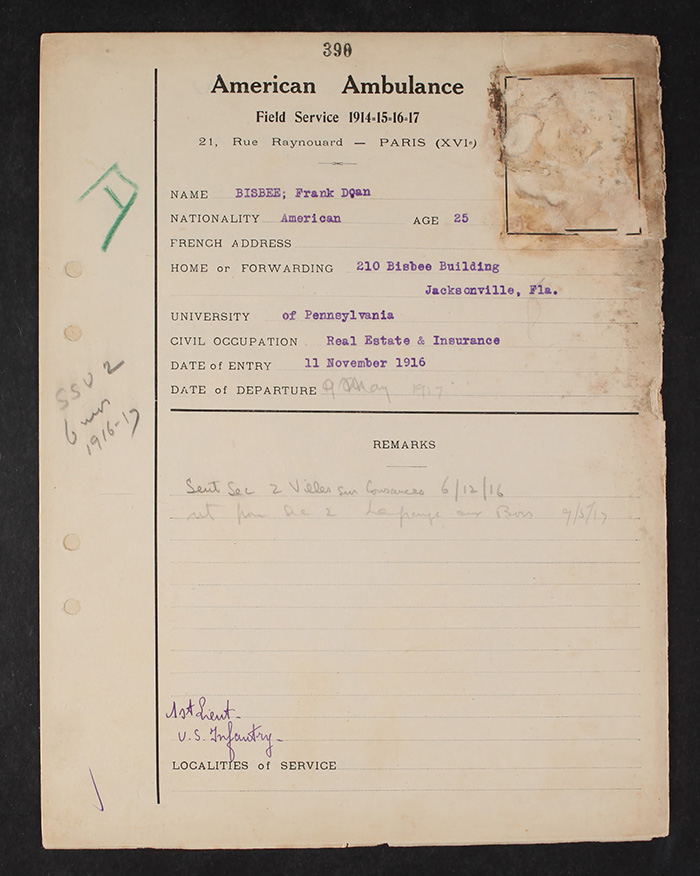 390
American Ambulance
Field Service 1914-15-16-17
21, Rue Raynouard — PARIS (XVIe)
NAME BISBEE; Frank Doan
NATIONALITY American AGE 25
FRENCH ADDRESS
HOME or FORWARDING 210 Bisbee Building
Jacksonville, Fla.
UNIVERSITY of Pennsylvania
CIVIL OCCUPATION Real Estate & Insurance
DATE of ENTRY 11 November 1916
DATE of DEPARTURE 9 May 1917
SSU 2
6 mos
1916-17
REMARKS
Sent Sec 2 Villes sur Cousances 6/12/16
ret from Sec 2 La grange aux Bois 9/5/17
1st Lieut-
U.S. Infantry-
LOCALITIES of SERVICE